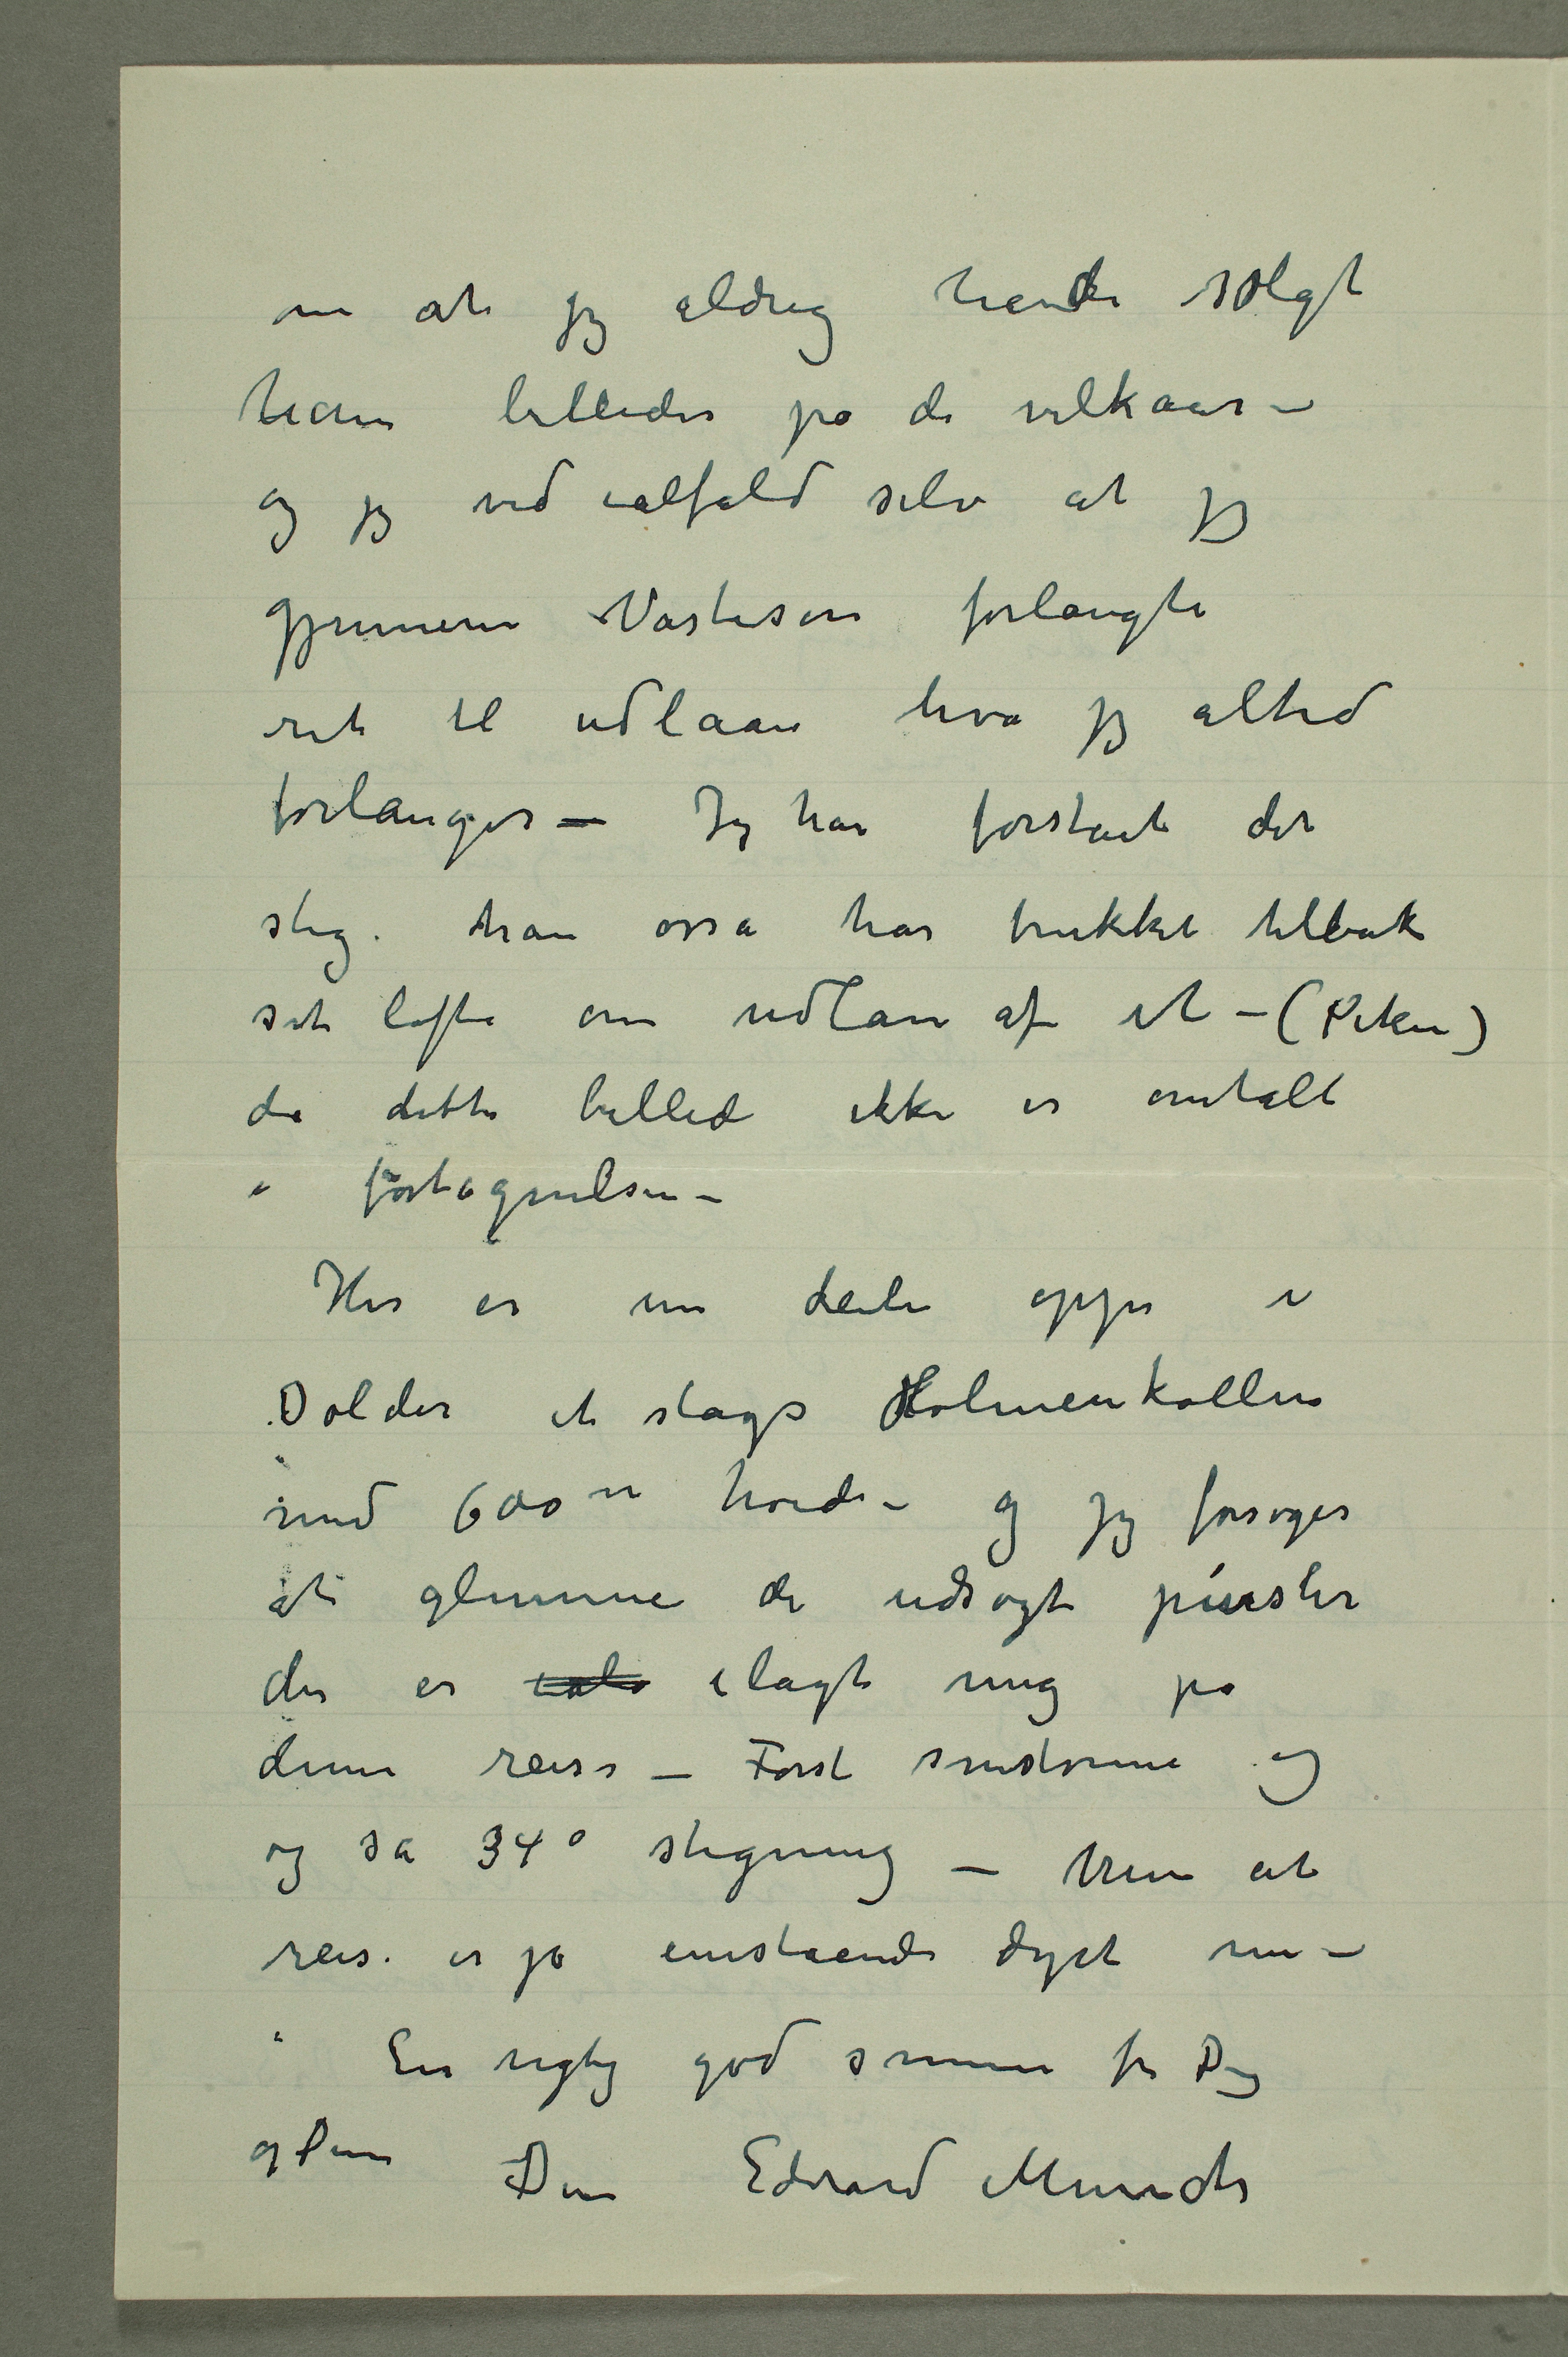 om at jeg aldrig havde solgt
ham billeder på de vilkaar –
og jeg ved ialfald selv at jeg
gjennem Vastesen forlangte
ret til udlaan hva jeg altid
forlanger – Jeg har forstaat det
slig. han osså har trukket tilbak
sit løfte om udlån af et – (Piken)
da dette billed ikke er omtalt
i fortegnelsen –
Her er nu deili oppe i
Dolder et slags Holmenkollen
med 600 m høide – og jeg forsøger
at glemme de udsøgte pinsler
der er ilagt mig på
denne reise – Først snestorme og
og så 34° stigning – Men at
reise er jo enestaaende dyrt nu –
En rigtig god sommer for Dig
og Dine
Din Edvard Munch